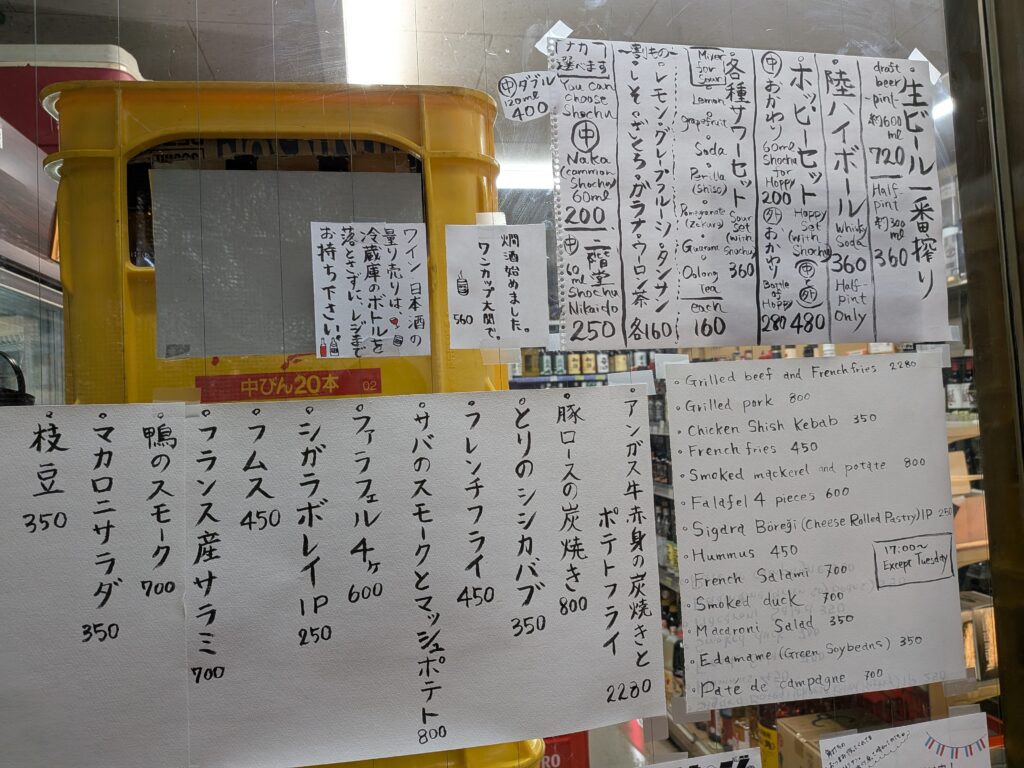 生ビール一番搾り
draft beer
-pint-
約600ml
720
Half-pint
約300ml
360
陸ハイボール
Whisky Soda
360
Half-Pint Only
ホッピーセット
Hoppy Set (with Shochu)
㊥と㊕
480
㊥おかわり
60ml Shochu for Hoppy
200
おかわり
Bottle of Hoppy
280
各種サワーセット
Sour Set (with Shochu)
360
Mixer for Sour
Lemon
grapefruit
Soda
Perilla (Shiso)
Pomegranate (Zakuro)
Guarana
Oolong tea
each
160
〜割もの〜
・レモン・グレープフルーツ・タンサン
・しそ・ざくろ・ガラナ・ウーロン茶
各160
ナカ
選べます
You can choose Shochu
㊥
Naka (common Shochu) 60ml
200
㊥二階堂
60ml Shochu Nikaido
250
㊥ダブル
120ml
400
燗酒始めました。
ワンカップ大関で。
560
ワイン・日本酒の
量り売りは
冷蔵庫のボトルを
落とさずに、レジまで
お持ち下さい。
中びん20本
02
・アンガス牛赤身の炭焼きと
ポテトフライ
2280
・豚ロースの炭焼き
800
・とりのシシカバブ
350
・フレンチフライ
450
・サバのスモークとマッシュポテト
800
・ファラフェル4ヶ
600
・シガラボレイ1P
250
・フムス
450
・フランス産サラミ
700
・鴨のスモーク
700
・マカロニサラダ
350
・枝豆
350
・Grilled beef and French fries 2280
・Grilled pork 800
・Chicken Shish Kebab 350
・French fries 450
・Smoked mackerel and potate 800
・Falafel 4 pieces 600
・Sigara Böreği (Cheese Rolled Pastry) 1P 250
・Hummus 450
・French Salami 700
・Smoked duck 700
・Macaroni Salad 350
・Edamame (Green Soybeans) 350
・Paté de campagne 700
17:00〜
Except Tuesday